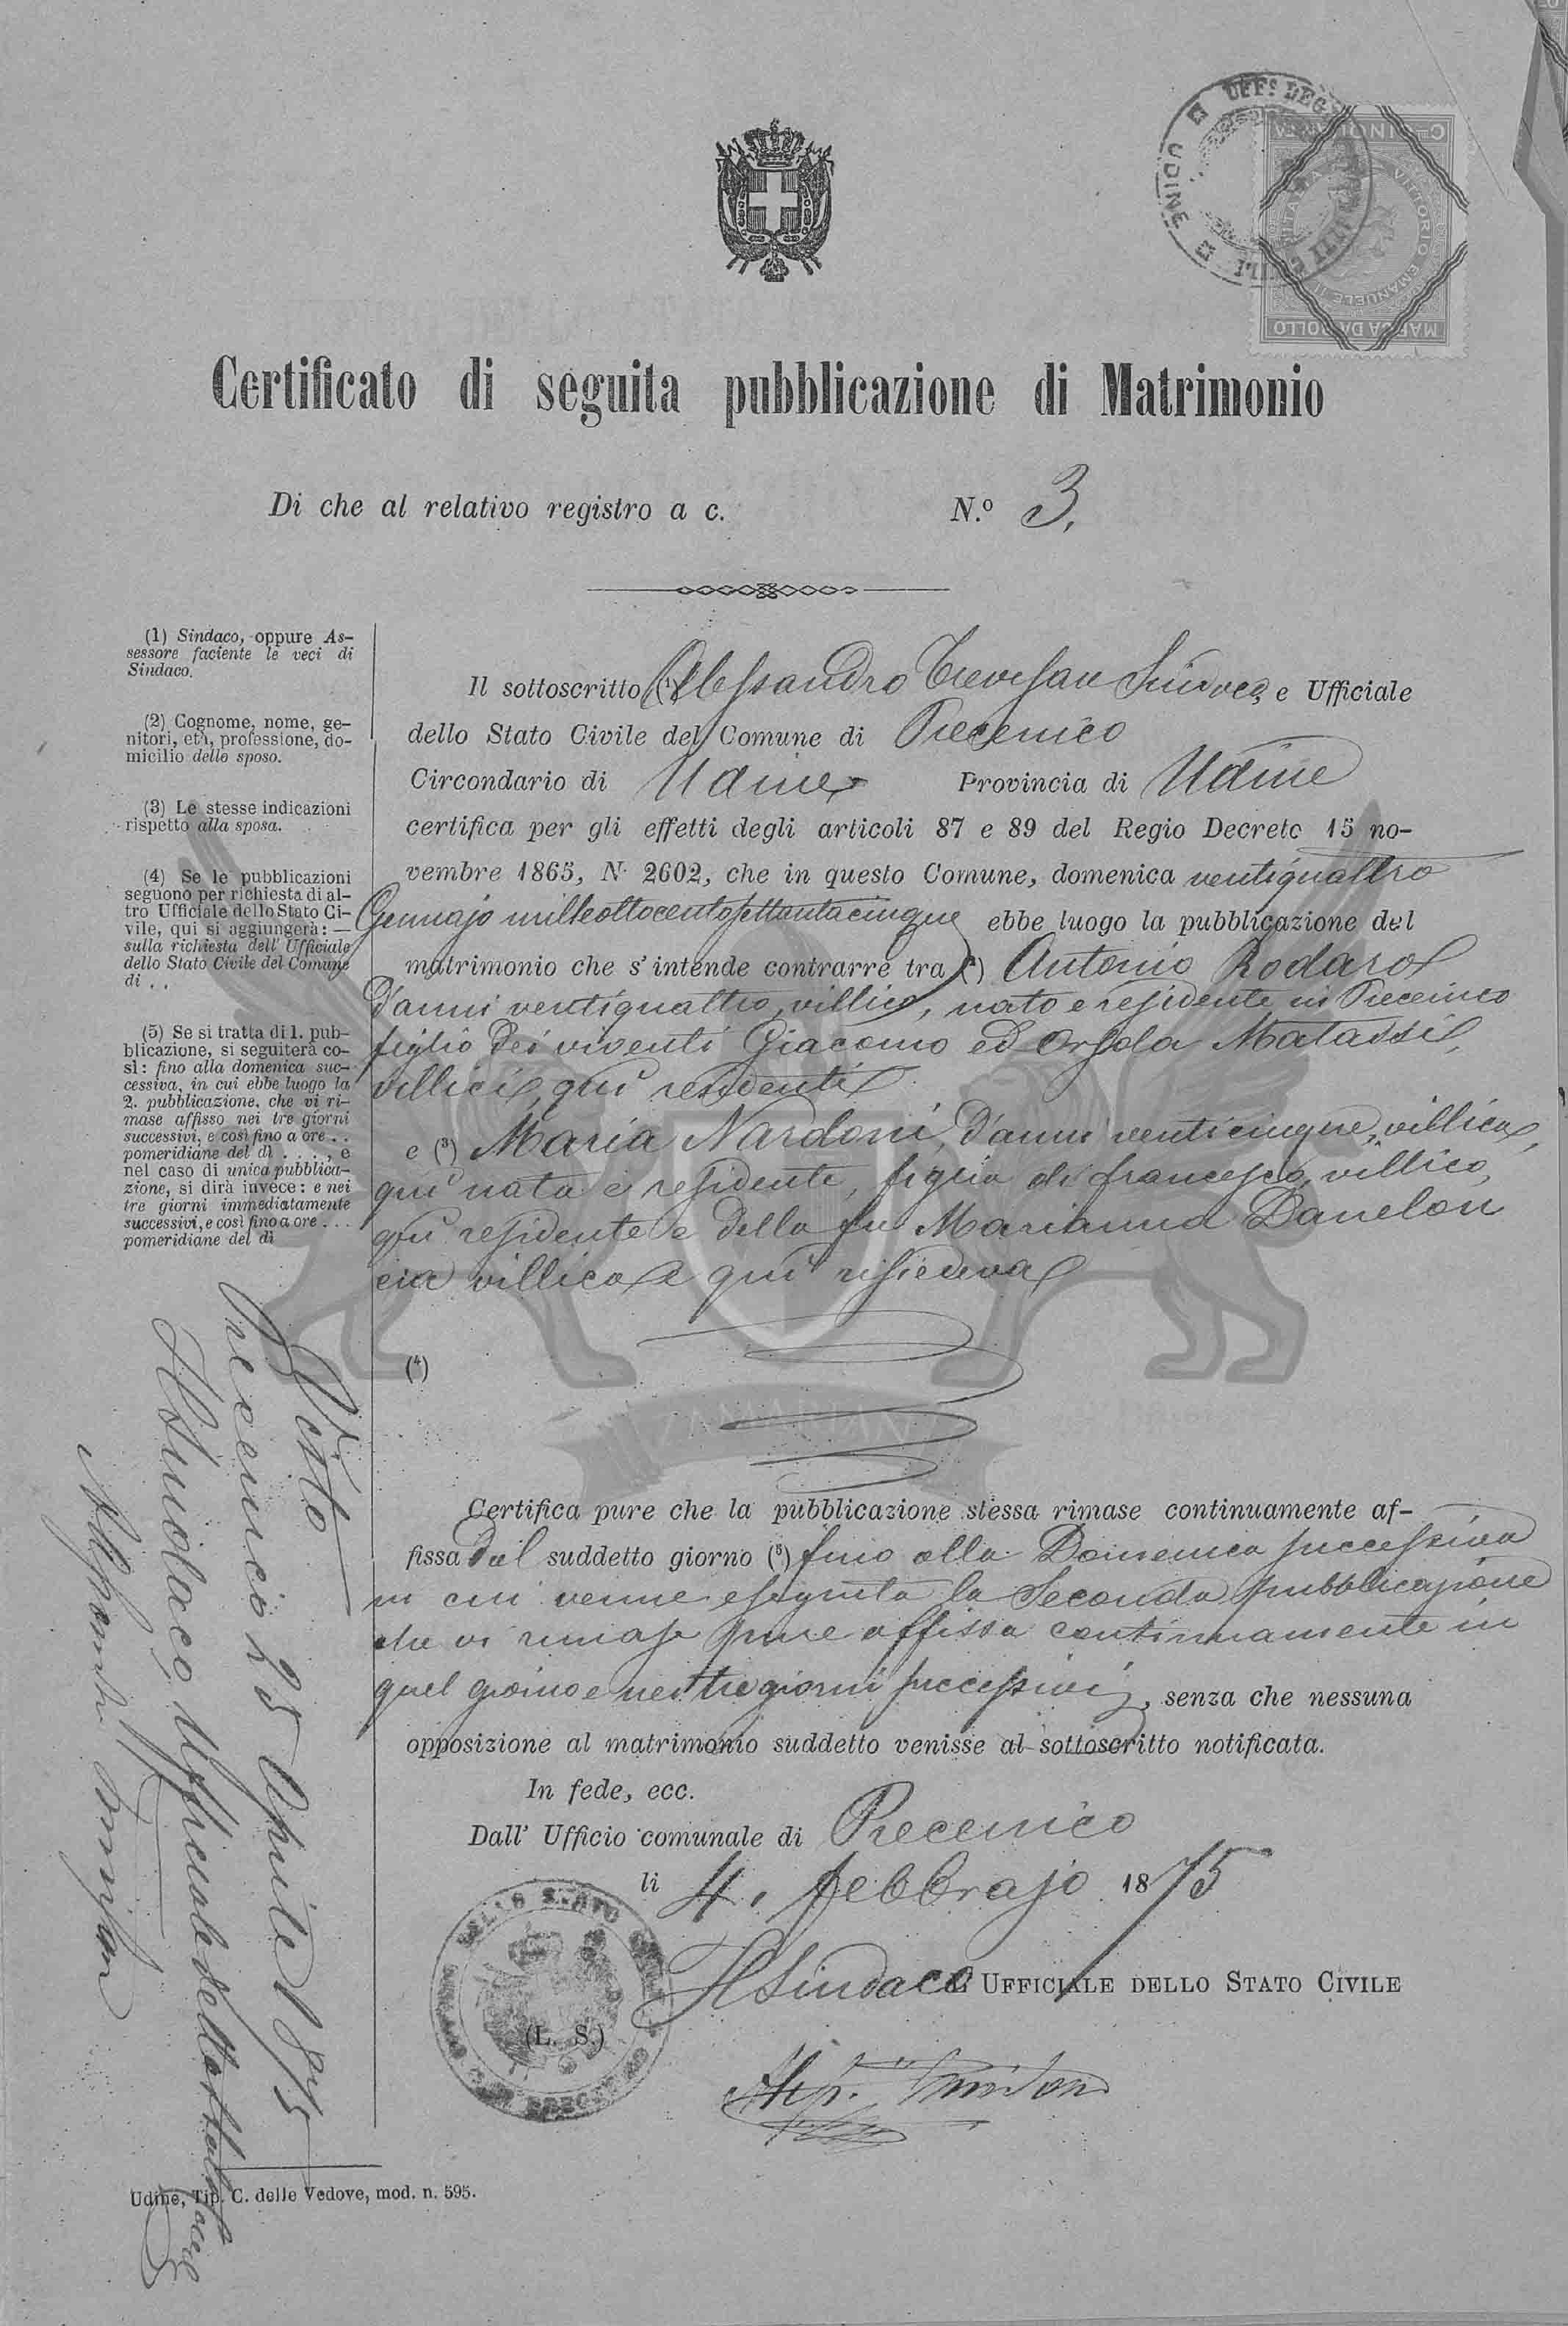 UFF.º DEG
UDINE
C.=CINQUANTA
ITALIA
VITTORIO EMANUELE II
MARCA DA BOLLO
Certificato di seguita pubblicazione di Matrimonio
Di che al relativo registro a c. N.º 3.
(1) Sindaco, oppure As-
sessore faciente le veci di
Sindaco.
(2) Cognome, nome, ge-
nitori, età, professione, do-
micilio dello sposo.
(3) Le stesse indicazioni
rispetto alla sposa.
(4) Se le pubblicazioni
seguono per richiesta di al-
tro Ufficiale dello Stato Ci-
vile, qui si aggiungerà: —
sulla richiesta dell' Ufficiale
dello Stato Civile del Comune
di . .
(5) Se si tratta di 1. pub-
blicazione, si seguiterà co-
sì: fino alla domenica suc-
cessiva, in cui ebbe luogo la
2. pubblicazione, che vi ri-
mase affisso nei tre giorni
successivi, e così fino a ore . .
pomeridiane del dì . . . . , e
nel caso di unica pubblica-
zione, si dirà invece: e nei
tre giorni immediatamente
successivi, e così fino a ore . . .
pomeridiane del dì
Il sottoscritto (¹) Alessandro Trevisan Sindaco, e Ufficiale
dello Stato Civile del Comune di Precenico
Circondario di Udine Provincia di Udine
certifica per gli effetti degli articoli 87 e 89 del Regio Decreto 15 no-
vembre 1865, N. 2602, che in questo Comune, domenica ventiquattro
Gennajo milleottocentosettantacinque ebbe luogo la pubblicazione del
matrimonio che s'intende contrarre tra (²) Antonio Rodaro
d'anni ventiquattro, villico, nato e residente in Precenico
figlio dei viventi Giacomo ed Orsola Matassi,
villici, qui residenti
e (³) Maria Nardoni, d'anni venticinque, villica,
qui nata e residente, figlia di Francesco, villico,
qui residente e della fu Marianna Danelon
era villica e qui risiedeva
(⁴)
ZAMARIAN
Certifica pure che la pubblicazione stessa rimase continuamente af-
fissa dal suddetto giorno (⁵) fino alla Domenica successiva
in cui venne eseguita la Seconda pubblicazione
che vi rimase pure affissa continuamente in
quel giorno e nei tre giorni successivi, senza che nessuna
opposizione al matrimonio suddetto venisse al sottoscritto notificata.
In fede, ecc.
Dall' Ufficio comunale di Precenico
li 4. febbrajo 1875
Il Sindaco
L' UFFICIALE DELLO STATO CIVILE
(L. S.)
Visto
Precenico 25 Aprile 1875
Il Sindaco Ufficiale dello Stato Civile
Udine, Tip. C. delle Vedove, mod. n. 595.